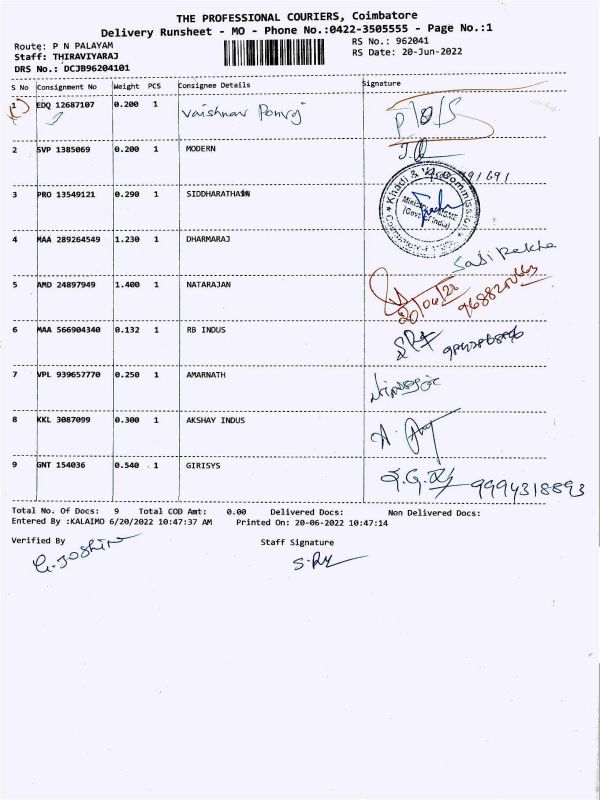 THE PROFESSIONAL COURIERS, Coimbatore
Delivery Runsheet - MO - Phone No.:0422-3505555 - Page No.:1
Route: P N PALAYAM RS No.: 962041
Staff: THIRAVIYARAJ RS Date: 20-Jun-2022
DRS No.: DCJB96204101
S No Consignment No Weight PCS Consignee Details Signature
1 EDQ 12687107 0.200 1 Vaishnav Ponraj
2 SVP 1385069 0.200 1 MODERN
3 PRO 13549121 0.290 1 SIDDHARATHAN
Khadi & V.I. Commission
(Govt. of India)
4 MAA 289264549 1.230 1 DHARMARAJ Sasi Rekha
5 AMD 24897949 1.400 1 NATARAJAN 20/06/22
6 MAA 566904340 0.132 1 RB INDUS
7 VPL 939657770 0.250 1 AMARNATH
8 KKL 3087099 0.300 1 AKSHAY INDUS
9 GNT 154036 0.540 1 GIRISYS 9994318893
Total No. Of Docs: 9 Total COD Amt: 0.00 Delivered Docs: Non Delivered Docs:
Entered By :KALAIMO 6/20/2022 10:47:37 AM Printed On: 20-06-2022 10:47:14
Verified By Staff Signature